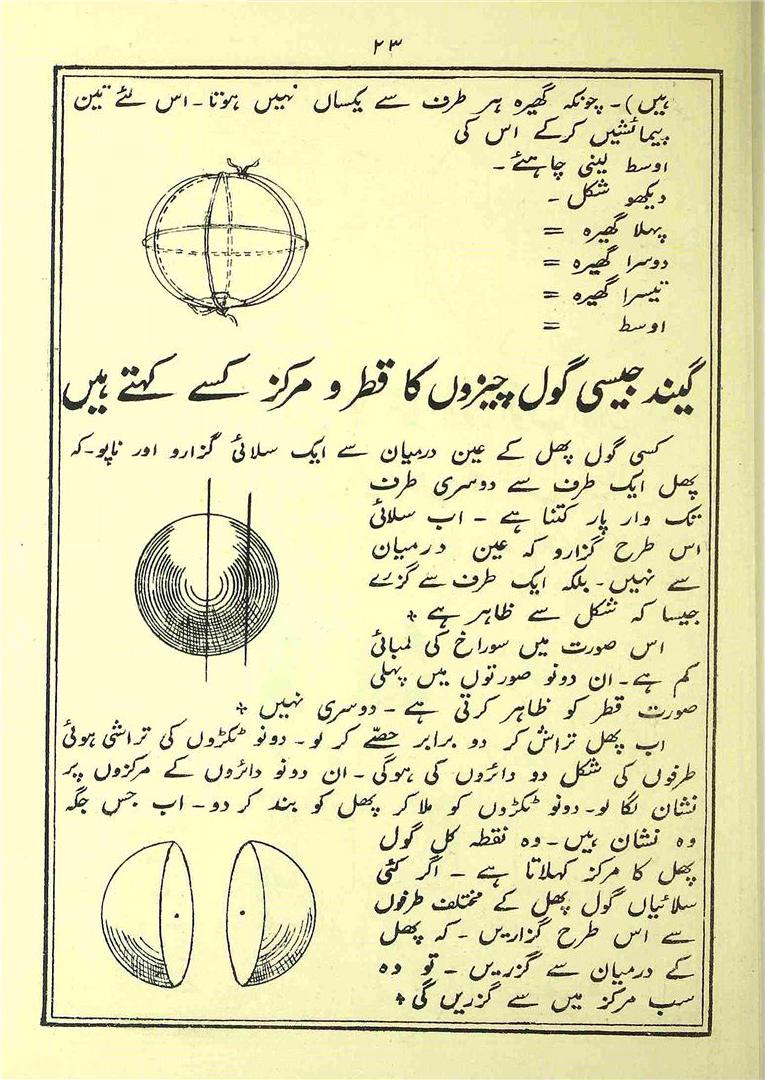 ۲۳
ہیں)۔ چونکہ گھیرہ ہر طرف سے یکساں نہیں ہوتا۔ اس لئے تین
پیمائشیں کرکے اس کی
اوسط لینی چاہئے۔
دیکھو شکل۔
پہلا گھیرہ =
دوسرا گھیرہ =
تیسرا گھیرہ =
اوسط =
گیند جیسی گول چیزوں کا قطر و مرکز کسے کہتے ہیں
کسی گول پھل کے عین درمیان سے ایک سلائی گزارو اور ناپو۔ کہ
پھل ایک طرف سے دوسری طرف
تک وار پار کتنا ہے ۔ اب سلائی
اس طرح گزارو کہ عین درمیان
سے نہیں۔ بلکہ ایک طرف سے گزرے
جیسا کہ شکل سے ظاہر ہے +
اس صورت میں سوراخ کی لمبائی
کم ہے۔ ان دونو صورتوں میں پہلی
صورت قطر کو ظاہر کرتی ہے ۔ دوسری نہیں +
اب پھل تراش کر دو برابر حصّے کر لو۔ دونو ٹکڑوں کی تراشی ہوئی
طرفوں کی شکل دو دائروں کی ہوگی ۔ ان دونو دائروں کے مرکزوں پر
نشان لگا لو۔ دونو ٹکڑوں کو ملا کر پھل کو بند کر دو۔ اب جس جگہ
وہ نشان ہیں۔ وہ نقطہ کل گول
پھل کا مرکز کہلاتا ہے ۔ اگر کئی
سلائیاں گول پھل کے مختلف طرفوں
سے اس طرح گزاریں ۔ کہ پھل
کے درمیان سے گزریں ۔ تو وہ
سب مرکز میں سے گزریں گی +